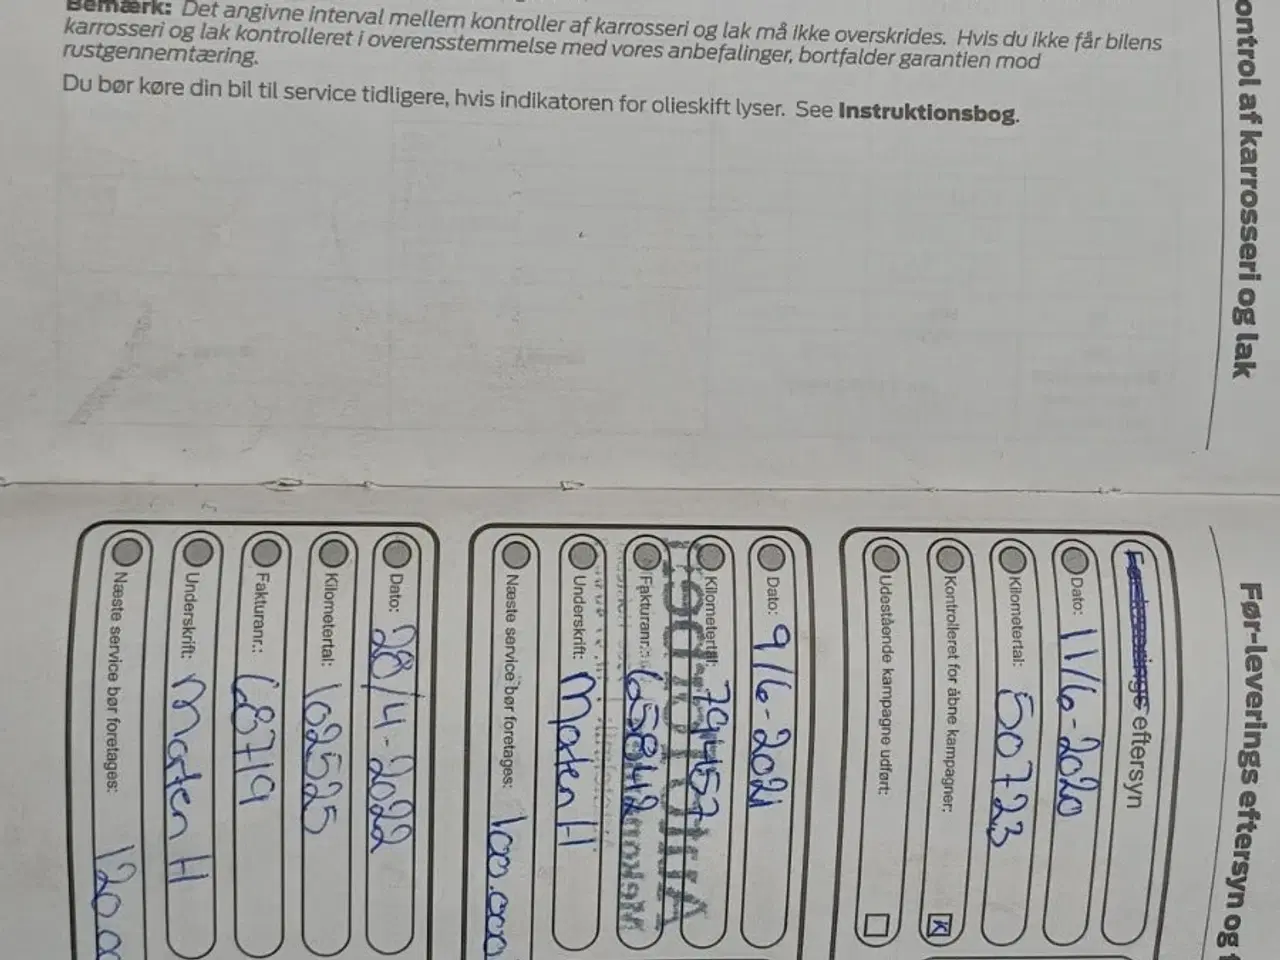 Bemærk: Det angivne interval mellem kontroller af karrosseri og lak må ikke overskrides. Hvis du ikke får bilens
karrosseri og lak kontrolleret i overensstemmelse med vores anbefalinger, bortfalder garantien mod
rustgennemtæring.
Du bør køre din bil til service tidligere, hvis indikatoren for olieskift lyser. See Instruktionsbog.
ontrol af karrosseri og lak
Før-leverings eftersyn og
Før-leverings eftersyn
Dato: 11/6-2020
Kilometertal: 50723
Kontrolleret for åbne kampagner:
Udestående kampagne udført:
Dato: 9/6-2021
Kilometertal: 79457
Fakturanr.: 65842
Underskrift: Morten H
Næste service bør foretages: 100.000
Dato: 28/4-2022
Kilometertal: 102525
Fakturanr.: 68719
Underskrift: Morten H
Næste service bør foretages: 120.0